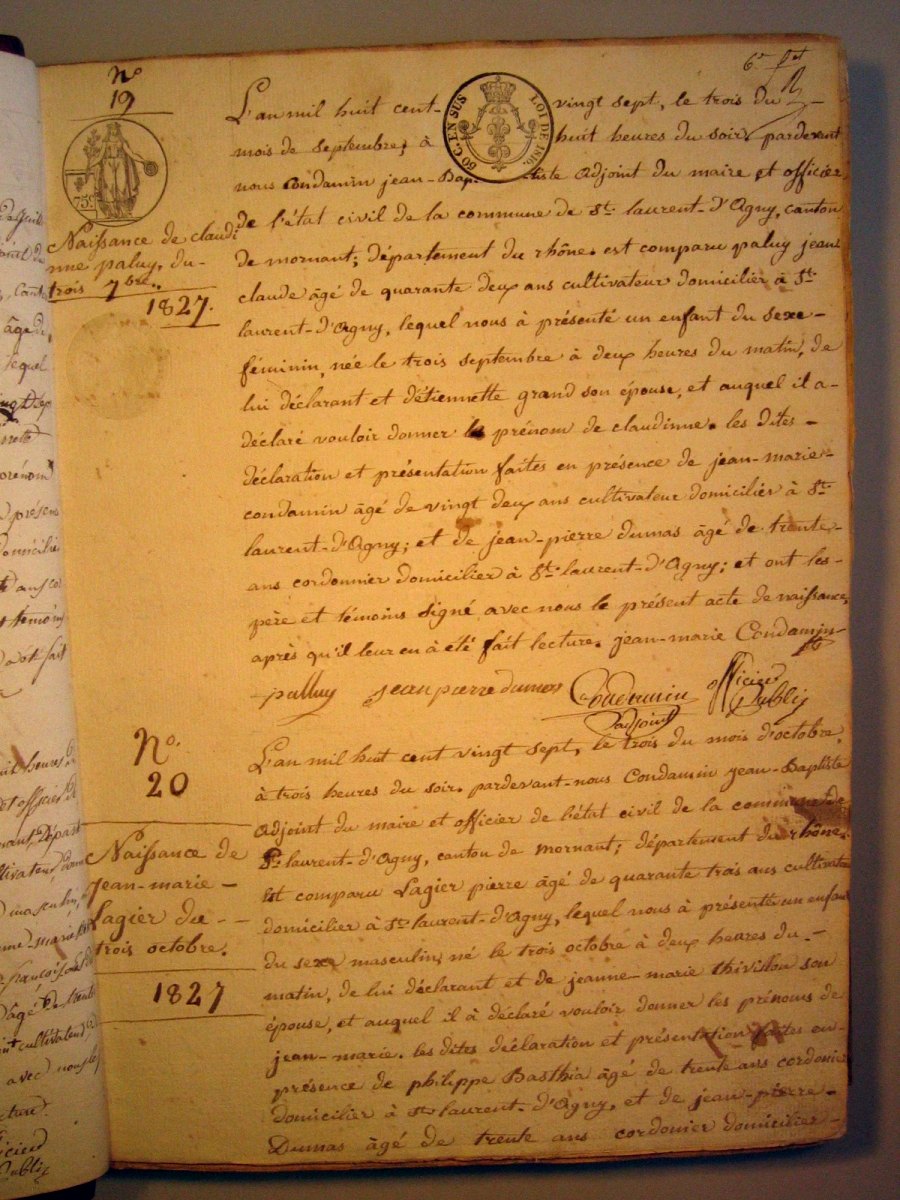 6e
No
19
75c
60 C. EN SUS
LOI DE 1816.
Naissance de claudi
nne paluy, du-
trois 7bre..
1827.
L'an mil huit cent- vingt sept, le trois du
mois de septembre, à huit heures du soir, pardevant
nous Condamin jean-Baptiste adjoint du maire et officier
de l'état civil de la commune de St. laurent-d'Agny, canton
de mornant; département du rhône. est comparu paluy jean
claude âgé de quarante deux ans cultivateur domicilier à St.
laurent-d'Agny, lequel nous à présenté un enfant du sexe-
féminin, née le trois septembre à deux heures du matin, de
lui déclarant et d'étiennette grand son épouse, et auquel il a-
déclaré vouloir donner le prénom de claudinne. les dites-
déclaration et présentation faites en présence de jean-marie-
condamin âgé de vingt deux ans cultivateur domicilier à St.
laurent-d'Agny; et de jean-pierre dumas âgé de trente-
ans cordonnier domicilier à St. laurent-d'Agny; et ont les-
père et témoins signé avec nous le présent acte de naissance,
après qu'il leur en à été fait lecture. jean-marie Condamin
palluy jean pierre dumas Condamin officier
adjoint Publiq
No.
20
Naissance de
jean-marie-
Lagier du--
trois octobre.
1827
L'an mil huit cent vingt sept, le trois du mois d'octobre
à trois heures du soir. pardevant-nous Condamin jean-Baptiste
adjoint du maire et officier de l'état civil de la commune de
St. laurent-d'Agny, canton de mornant; département du rhône.
Est comparu Lagier pierre âgé de quarante trois ans cultivateur
domicilier à St. laurent-d'Agny, lequel nous à présenté un enfant
du sexe masculin, né le trois octobre à deux heures du.-
matin, de lui déclarant et de jeanne-marie thivillon son
épouse, et auquel il à déclaré vouloir donner les prénoms de
jean-marie. les dites déclaration et présentation faites en-
présence de philippe Basthia âgé de trente ans cordonier
domicilier à St. laurent-d'Agny, et de jean-pierre-
Dumas âgé de trente ans cordonier domicilier-